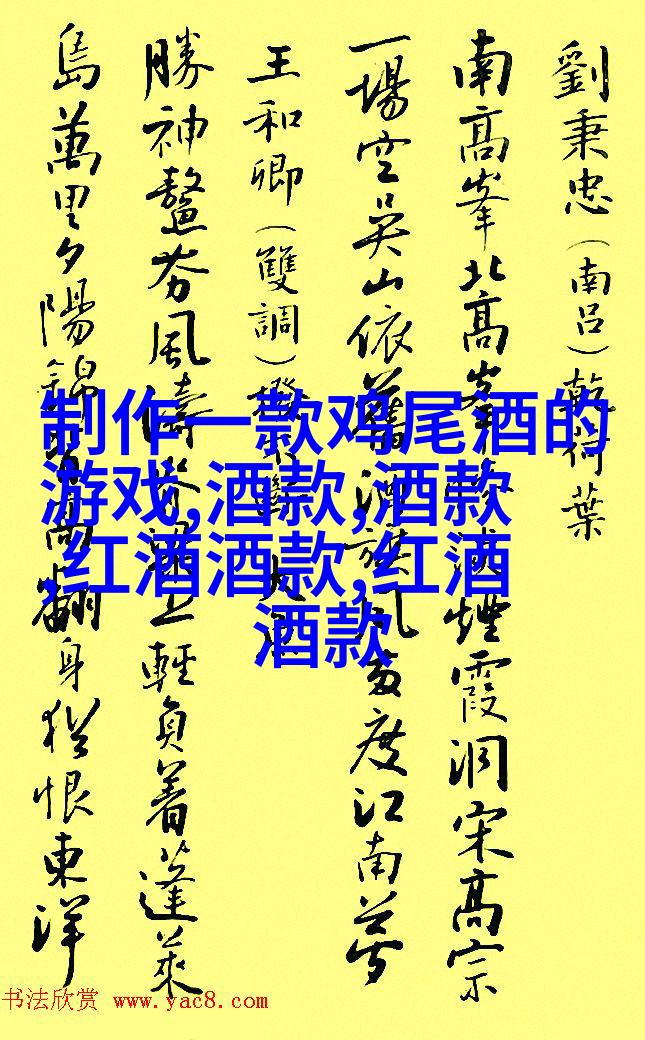 劉秉忠(南呂)乾荷葉
南高峯北高峯
煙霞洞宋高宗
一場空吳山依舊酒旗風兩度江南夢
王和卿(雙調)撥不斷 大魚
勝神鰲夯風濤脊梁上輕負着蓬萊
島萬里夕陽錦背高翻身猶恨東洋
制作一款鸡尾酒的
游戏,酒款,酒款
,红酒酒款,红酒
酒款
书法欣赏 www.yac8.com